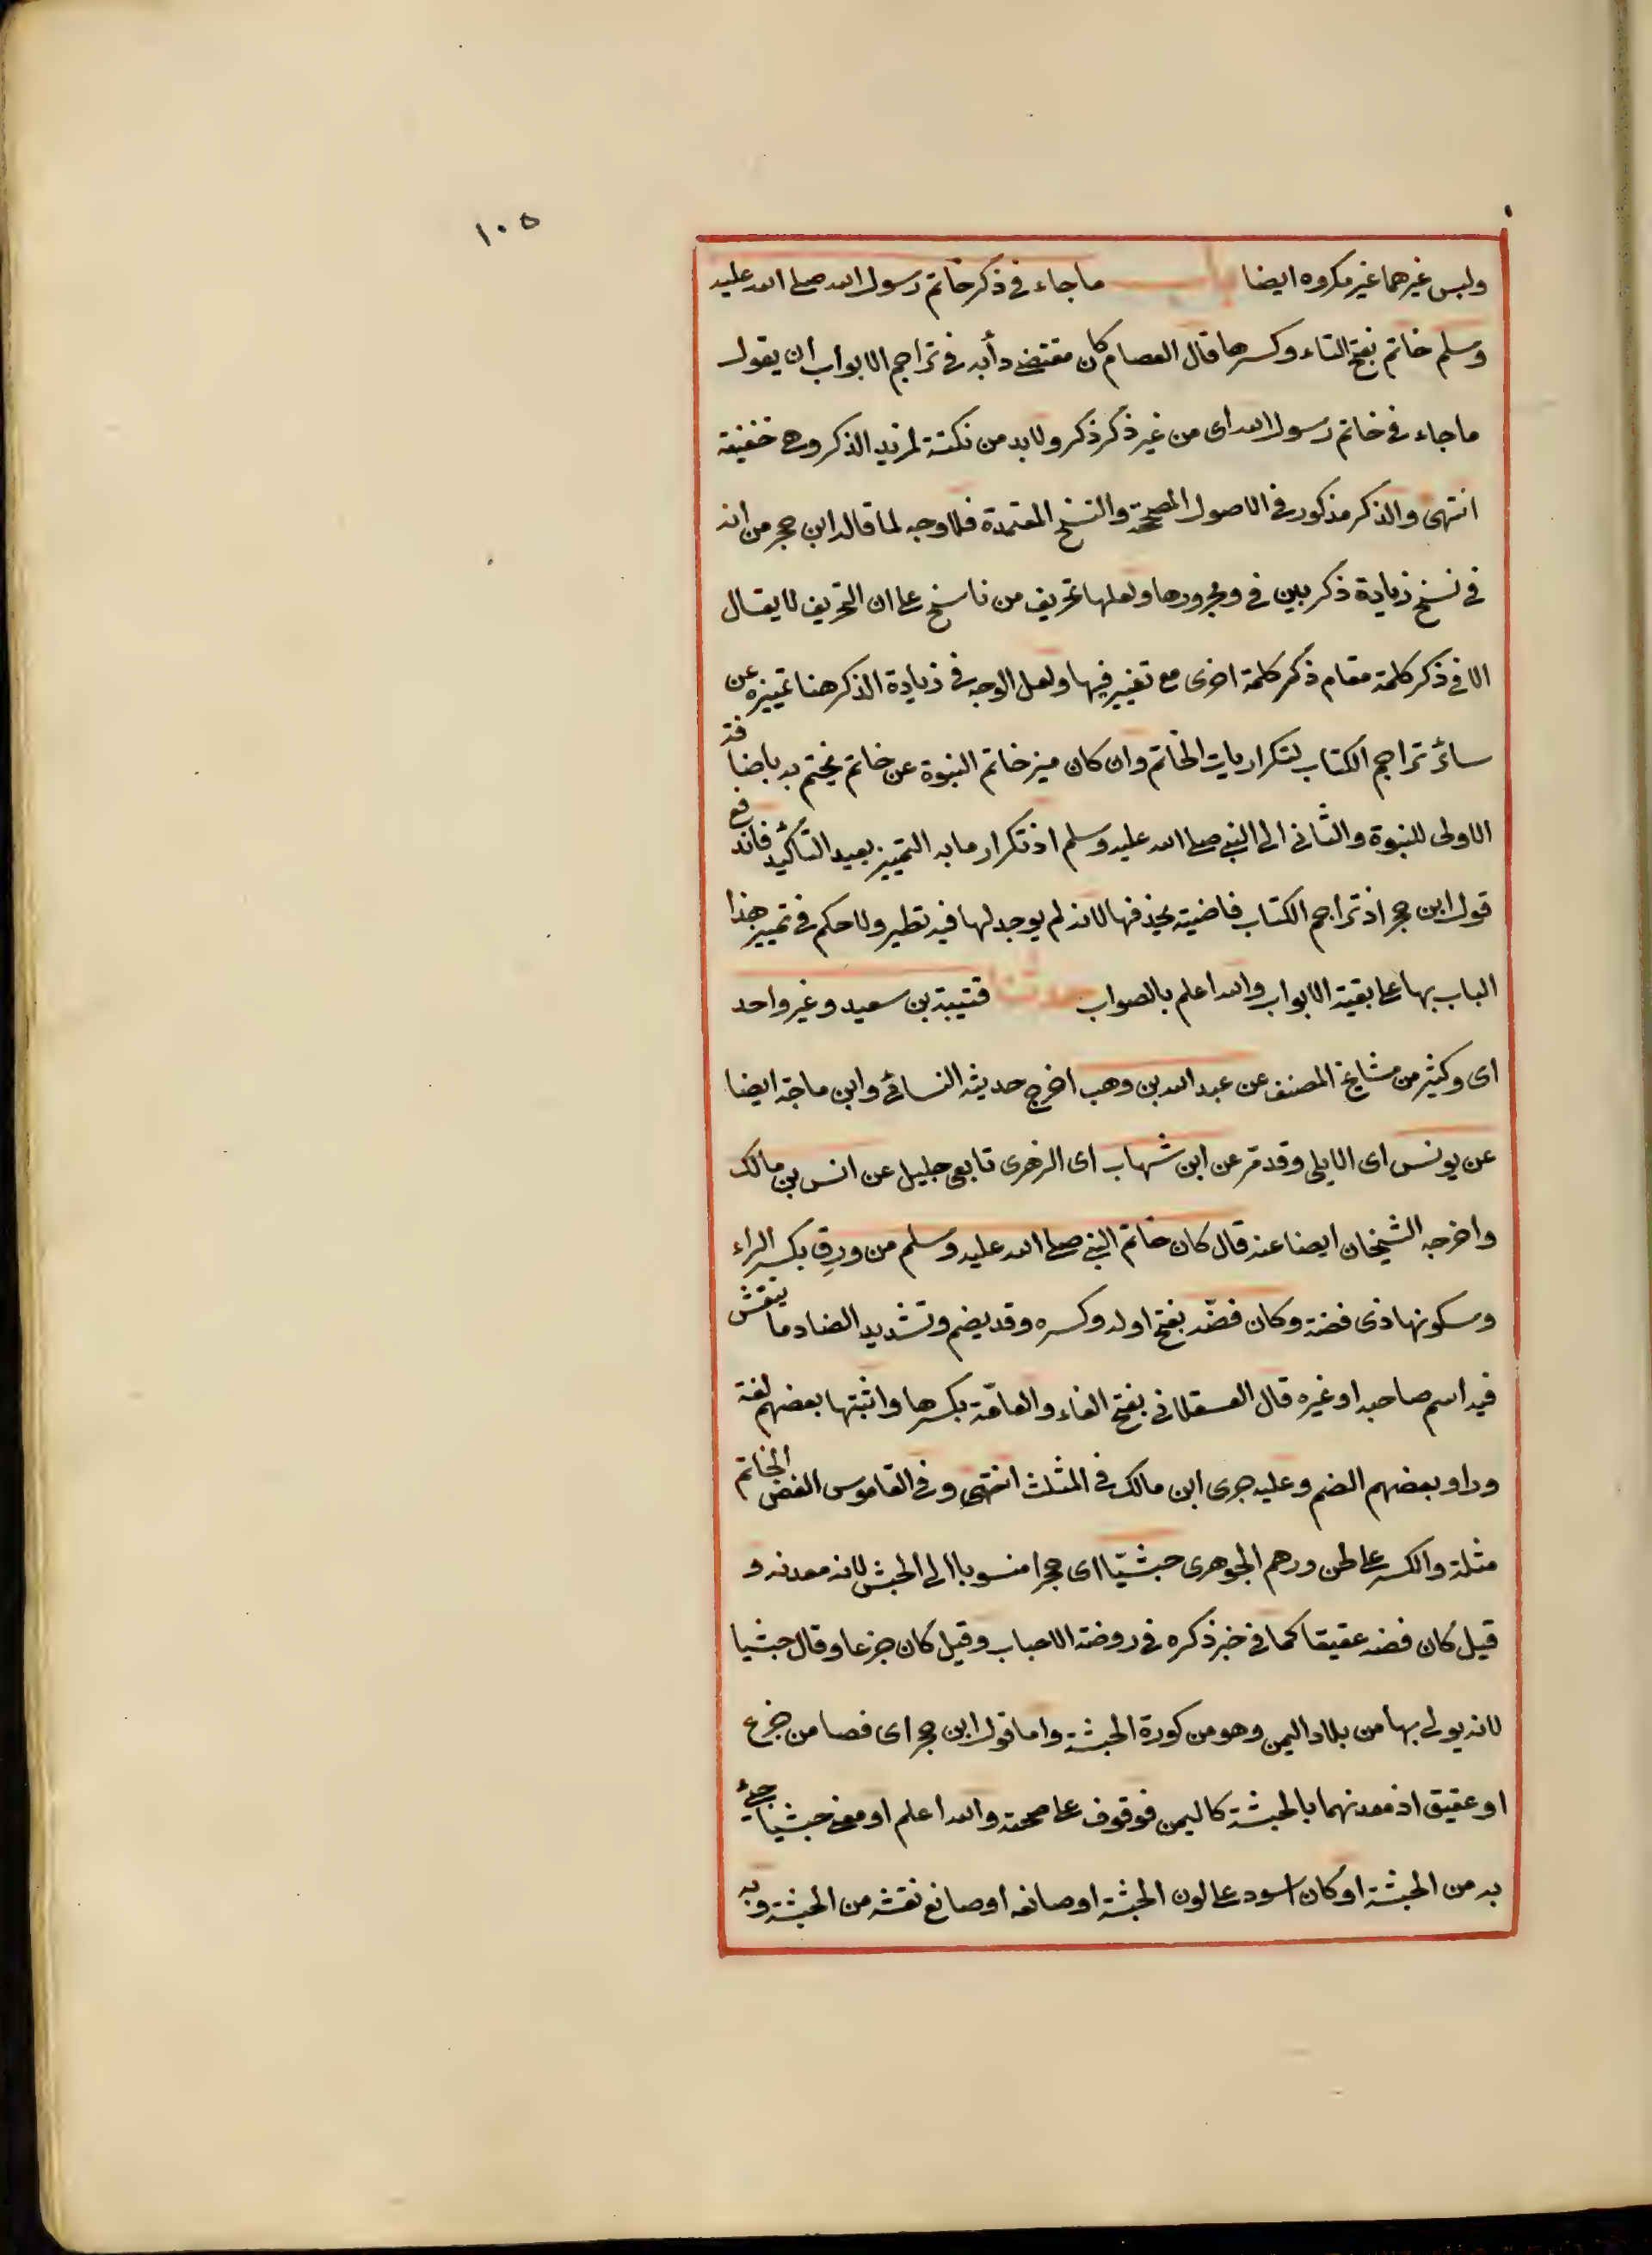 ١٠٥
ولبس غيرهما غير مكروه ايضا باب ما جاء في ذكر خاتم رسول الله صلى الله عليه
وسلم خاتم بفتح التاء وكسرها قال العصام كان مقتضى دأبه في تراجم الابواب ان يقول
ما جاء في خاتم رسول الله اى من غير ذكر ذكر ولا بد من نكتة لمزيد الذكر وهى خفية
انتهى والذكر مذكور في الاصول المصححة والنسخ المعتمدة فلا وجه لما قاله ابن حجر من انه
في نسخ زيادة ذكر بين في ومجرورها ولعلها تحريف من ناسخ على ان التحريف لا يقال
الا في ذكر كلمة مقام ذكر كلمة اخرى مع تغيير فيها ولعل الوجه في زيادة الذكر هنا تمييزه عن
سائر تراجم الكتاب لتكرار باب الخاتم وان كان ميز خاتم النبوة عن خاتم يختم به باضافة
الاولى للنبوة والثاني الى النبي صلى الله عليه وسلم اذ تكرار ما به التمييز يفيد التأكيد فاندفع
قول ابن حجر اذ تراجم الكتاب قاضية بحذفها لانه لم يوجد لها فيه نظير ولا حكم في تمييز هذا
الباب بها على بقية الابواب والله اعلم بالصواب حدثنا قتيبة بن سعيد وغير واحد
اى وكثير من مشايخ المصنف عن عبد الله بن وهب اخرج حديثه النسائي وابن ماجة ايضا
عن يونس اى الايلي وقد مر عن ابن شهاب اى الزهرى تابعي جليل عن انس بن مالك
واخرجه الشيخان ايضا عنه قال كان خاتم النبي صلى الله عليه وسلم من ورِق بكسر الراء
وسكونها ذى فضة وكان فصّه بفتح اوله وكسره وقد يضم وتشديد الصاد ما ينقش
فيه اسم صاحبه او غيره قال العسقلاني بفتح الفاء والعامّة بكسرها واثبتها بعضهم لغة
وزاد بعضهم الضم وعليه جرى ابن مالك في المثلث انتهى وفي القاموس الفص الخاتم
مثلثة والكسر على لحن ورهم الجوهرى حبشيّا اى حجرا منسوبا الى الحبش لانه معدنه و
قيل كان فصه عقيقا كما في خبر ذكره في روضة الاحباب وقيل كان جزعا وقال حبشيا
لانه يولى بها من بلاد اليمن وهو من كورة الحبشة واما قول ابن حجر اى فصا من جزع
او عقيق اذ معدنهما بالحبشة كاليمن فموقوف على صحته والله اعلم او معنى حبشيا جئ
به من الحبشة او كان اسود على لون الحبشة او صانعه او صانع نقشه من الحبشة وبه